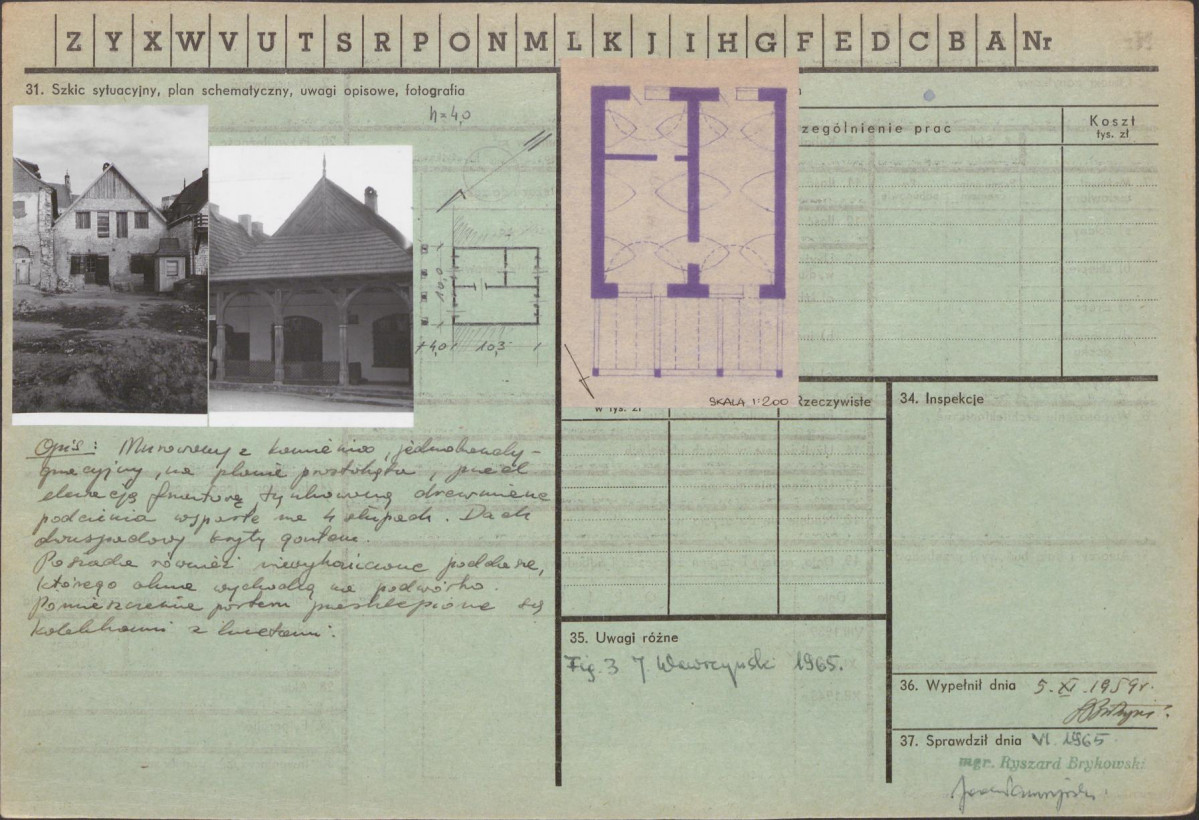 Z Y X W V U T S R P O N M L K J I H G F E D C B A Nr
31. Szkic sytuacyjny, plan schematyczny, uwagi opisowe, fotografia
h = 4,0
10,0
4,0 10,3
SKALA 1:200
zególnienie prac
Koszt
tys. zł
w tys. zł
Rzeczywiste
34. Inspekcje
Opis: Murowany z kamienia, jednokondy-
gnacyjny, na planie prostokąta, przed
elewacją frontową tynkowaną drewniane
podcienia wsparte na 4 słupach. Dach
dwuspadowy kryty gontem.
Posiada również niewykańczone poddasze,
którego okna wychodzą na podwórko.
Pomieszczenia parteru przesklepione są
kolebkami z lunetami.
35. Uwagi różne
Fig. 3 J. Wawrzyński 1965.
36. Wypełnił dnia 5. XI. 1959 r.
37. Sprawdził dnia VI. 1965
mgr. Ryszard Brykowski